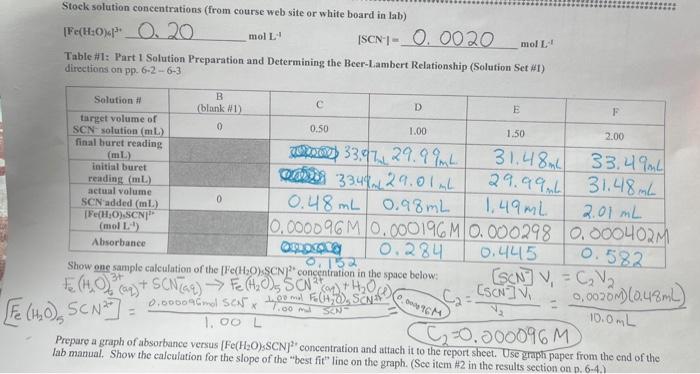 Stock solution concentrations (from course web site or white board in lab)
[Fe(H₂O)₆]³⁺ 0.20 mol L⁻¹ [SCN⁻] = 0.0020 mol L⁻¹
Table #1: Part 1 Solution Preparation and Determining the Beer-Lambert Relationship (Solution Set #1)
directions on pp. 6-2 – 6-3
Solution # B (blank #1) C D E F
target volume of SCN⁻ solution (mL) 0 0.50 1.00 1.50 2.00
final buret reading (mL) 33.97mL 29.99mL 31.48mL 33.49mL
initial buret reading (mL) 33.49mL 29.01mL 29.99mL 31.48mL
actual volume SCN⁻ added (mL) 0 0.48mL 0.98mL 1.49mL 2.01mL
[Fe(H₂O)₅SCN]²⁺ (mol L⁻¹) 0.000096M 0.000196M 0.000298 0.000402M
Absorbance 0.152 0.284 0.445 0.582
Show one sample calculation of the [Fe(H₂O)₅SCN]²⁺ concentration in the space below:
Fe(H₂O)₆³⁺(aq) + SCN⁻(aq) → Fe(H₂O)₅SCN²⁺(aq) + H₂O(l)
[SCN⁻] V₁ = C₂V₂
[Fe(H₂O)₅SCN²⁺] = 0.000096mol SCN⁻ × 1.00 mol Fe(H₂O)₅SCN²⁺ / 1.00 mol SCN⁻ / 1.00 L = 0.000096M
C₂ = [SCN⁻]V₁ / V₂ = 0.0020M)(0.48mL) / 10.0mL
C₂=0.000096M
Prepare a graph of absorbance versus [Fe(H₂O)₅SCN]²⁺ concentration and attach it to the report sheet. Use graph paper from the end of the
lab manual. Show the calculation for the slope of the "best fit" line on the graph. (See item #2 in the results section on p. 6-4.)